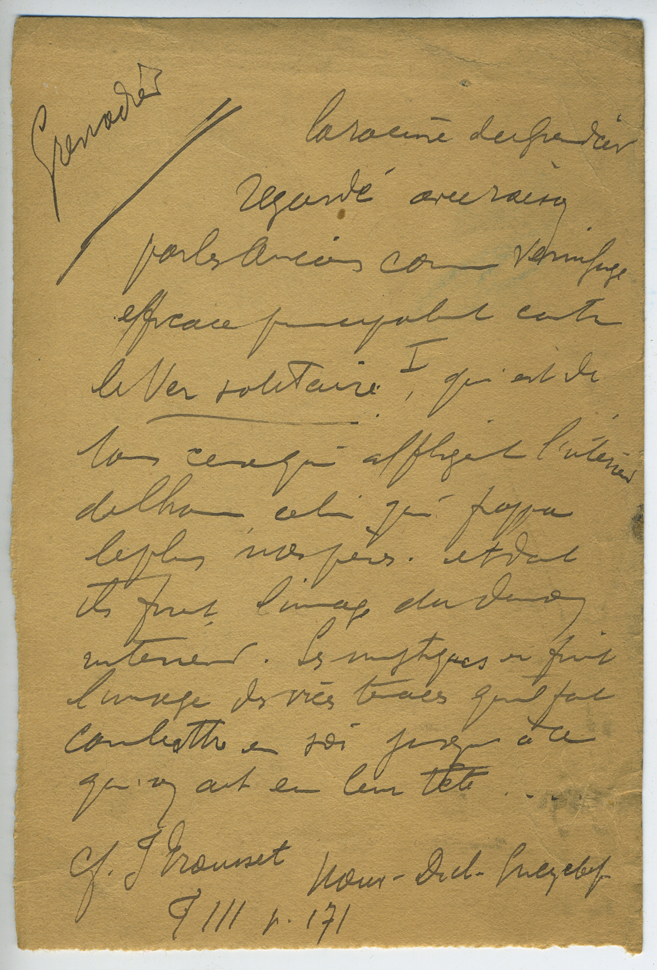 Grenadier
la racine du grenadier
regardé avec raison
par les Anciens comme vermifuge
efficace principalement contre
le Ver solitaire I, qui est de
tous ceux qui affligent l'intérieur
de l'homme celui qui frappa
le plus nos pères. et dont
ils firent l'image du démon
intérieur. Les mystiques en firent
l'image des vices tenaces qu'il faut
combattre en soi jusqu'à ce
qu'on ait eu leur tête ....
cf. J Trousset Nouv- Dict- Encyclop
T III p. 171